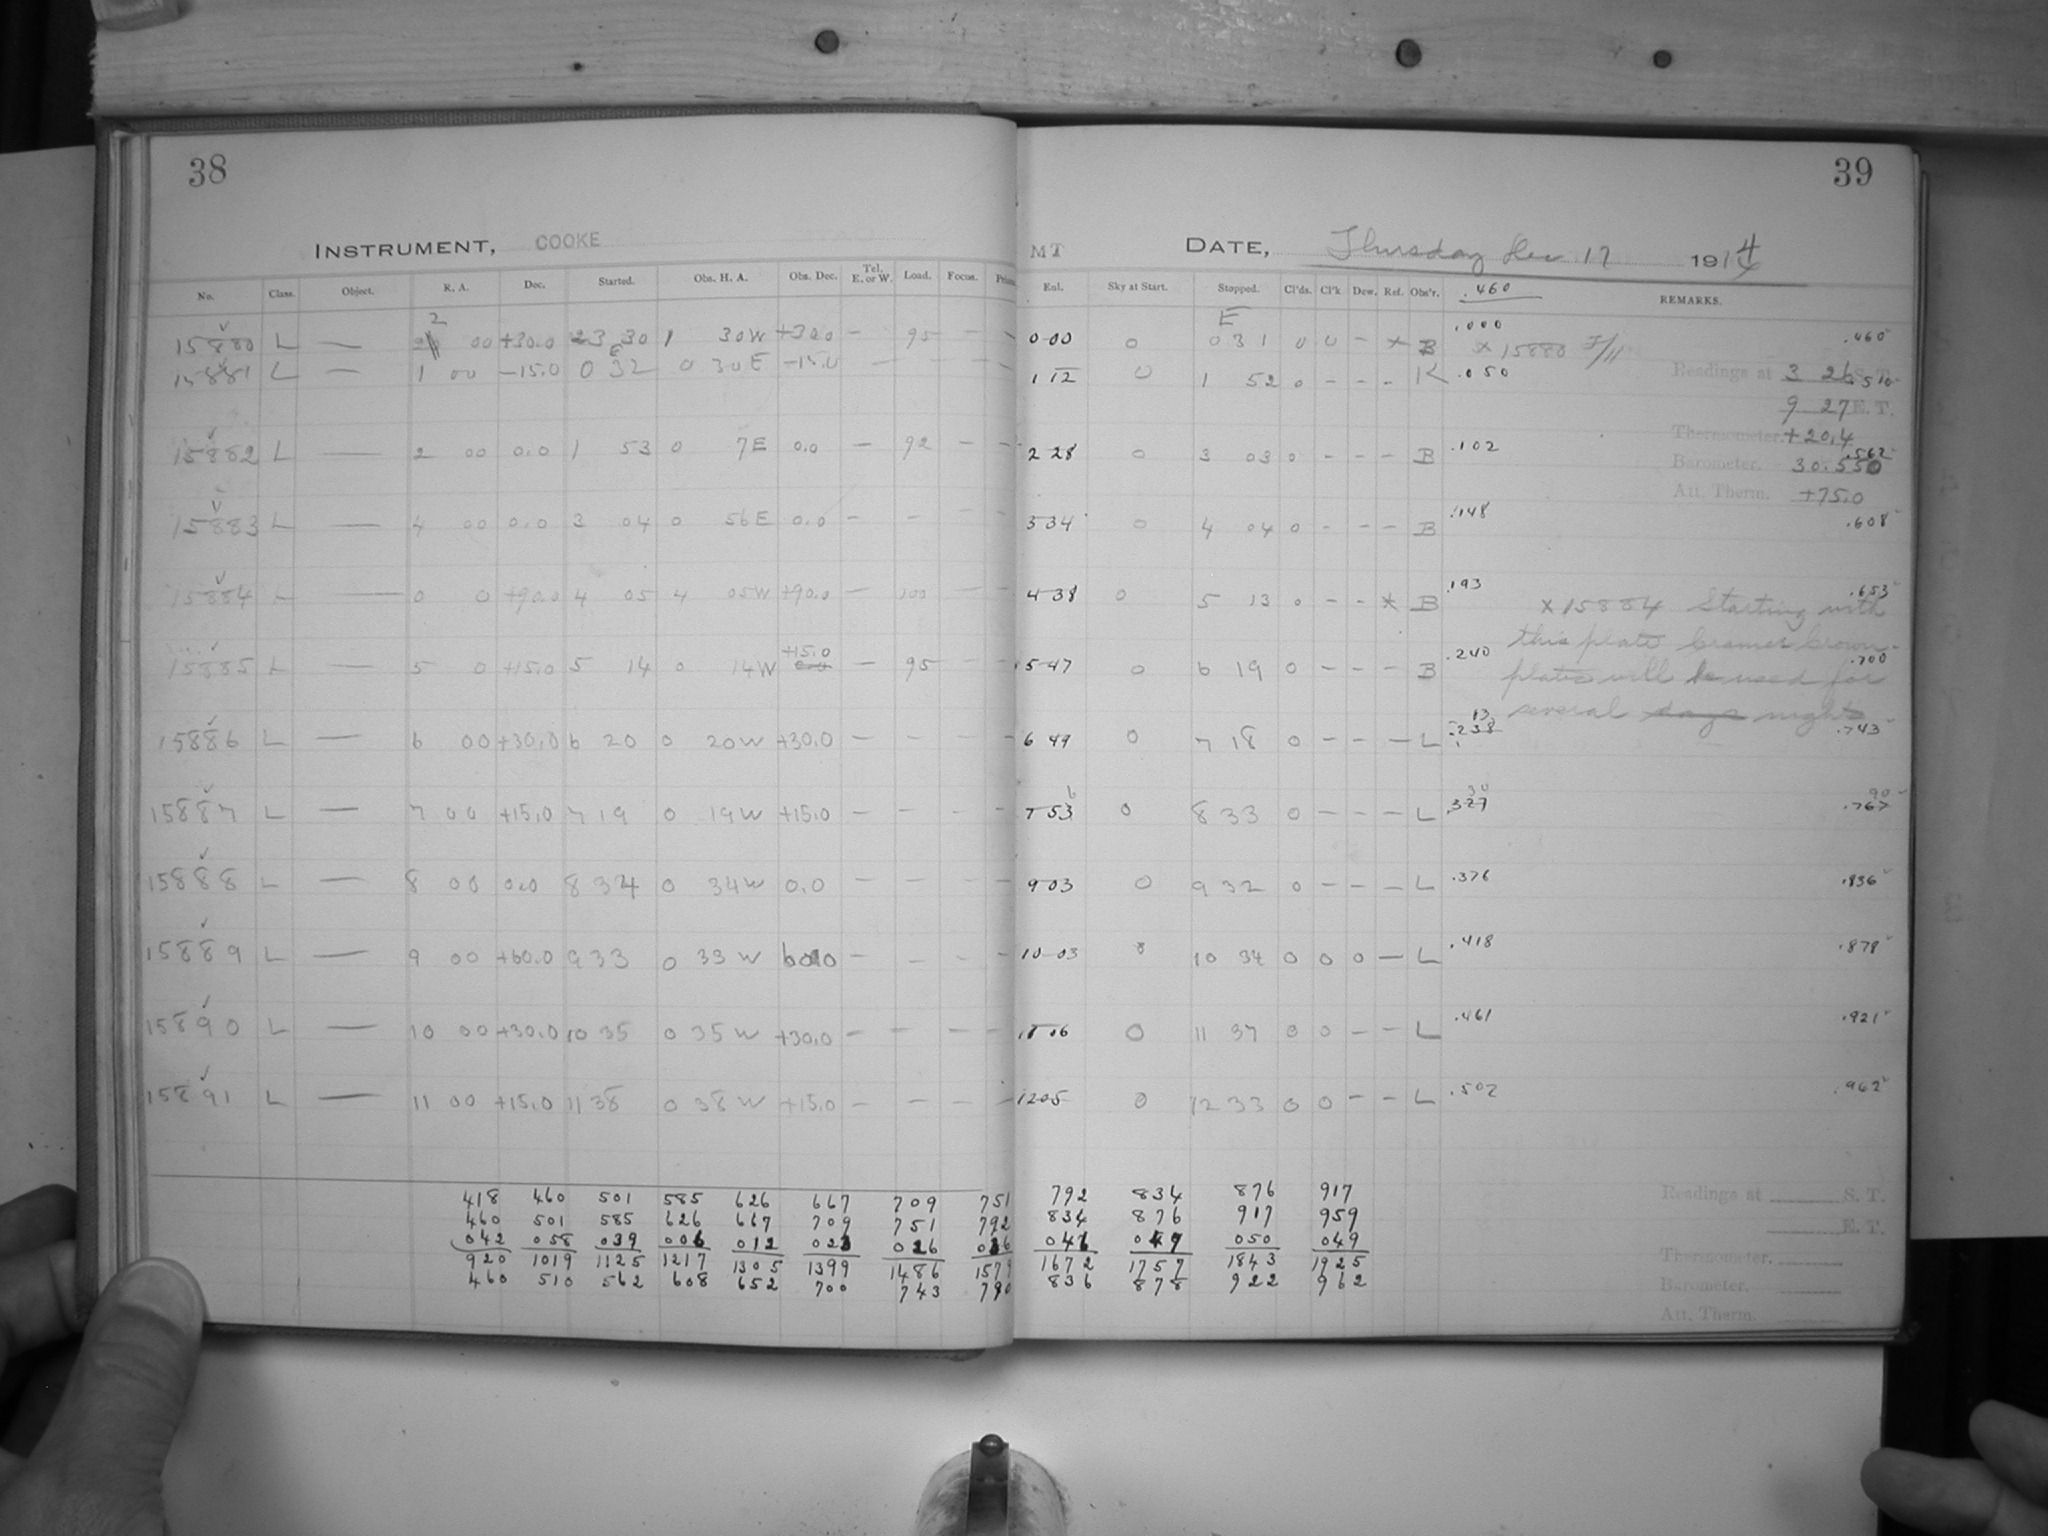 38
INSTRUMENT, COOKE
No. Class. Object. R. A. Dec. Started. Obs. H. A. Obs. Dec. Tel. E. or W. Load. Focus.
2
15880 L — 00 +30.0 23 30 1 30W +30.0 — 95 — —
15881 L — 1 00 −15.0 0 32 0 30E −15.0 — — — —
15882 L — 2 00 0.0 1 53 0 7E 0.0 — 92 — —
15883 L — 4 00 0.0 3 04 0 56E 0.0 — — — —
15884 L — 0 0 +90.0 4 05 4 05W +90.0 — 100 — —
+15.0
15885 L — 5 0 +15.0 5 14 0 14W — 95 — —
15886 L — 6 00 +30.0 6 20 0 20W +30.0 — — — —
15887 L — 7 00 +15.0 7 19 0 19W +15.0 — — — —
15888 L — 8 00 0.0 8 34 0 34W 0.0 — — — —
15889 L — 9 00 +60.0 9 33 0 33W — — — —
15890 L — 10 00 +30.0 10 35 0 35W +30.0 — — — —
15891 L — 11 00 +15.0 11 38 0 38W +15.0 — — — —
418 460 501 585 626 667 709 751
460 501 585 626 667 709 751 792
042 058 039 006 012 023 026 036
920 1019 1125 1217 1305 1399 1486 1579
460 510 562 608 652 700 743 790
39
MT DATE, Thursday Dec 17 1914
Exl. Sky at Start. Stopped. Cl'ds. Cl'k Dew. Ref. Obs'r. .460 REMARKS.
E
0 00 0 0 31 0 0 — x B .000 x 15880 F/11 .460
1 12 0 1 52 0 - - - K .050 .510
Readings at 3 26 S. T.
9 27 E. T.
Thermometer. +20.4
2 28 0 3 03 0 - - - B .102 .562
Barometer. 30.550
Att. Therm. +75.0
3 34 0 4 04 0 - - - B .148 .608
4 38 0 5 13 0 - - x B .193 .653
x 15884 Starting with
this plate Cramer Crown
5 47 0 6 19 0 - - - B .240 .700
plates will be used for
several days nights
6 49 0 7 18 0 - - - L .743
7 53 0 8 33 0 - - - L .327 .767
9 03 0 9 32 0 - - - L .376 .836
10 03 10 34 0 0 0 — L .418 .878
0 11 37 0 0 - - L .461 .921
12 05 0 12 33 0 0 - - L .502 .962
792 834 876 917
834 876 917 959
050 049
1672 1757 1843 1925
836 878 922 962
Readings at S. T.
E. T.
Thermometer.
Barometer.
Att. Therm.